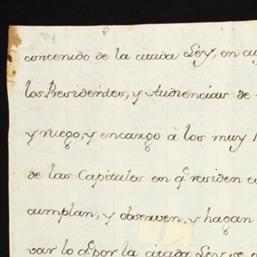 contenido de la citada Ley, en cu
los Presidentes, y Audiencias de
y ruego, y encargo â los muy
de las Capitales en q.e residen
cumplan, y observen, y hagan
var lo q.e por la citada Ley se